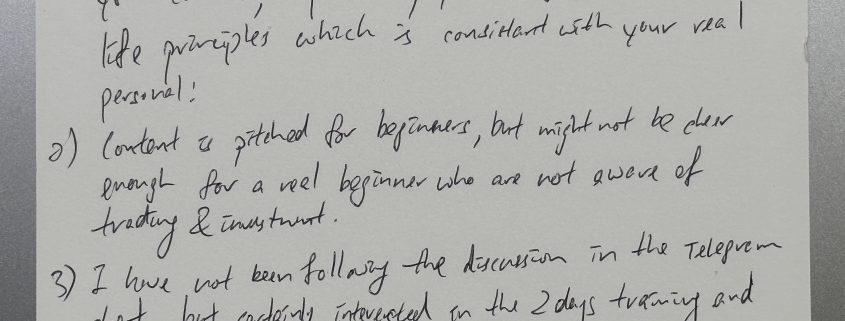 life principles which is consistant with your real
personal!
2) Content is pitched for beginners, but might not be clear
enough for a real beginner who are not aware of
trading & investment.
3) I have not been following the discussion in the Telegram
but certainly interested in the 2 days training and